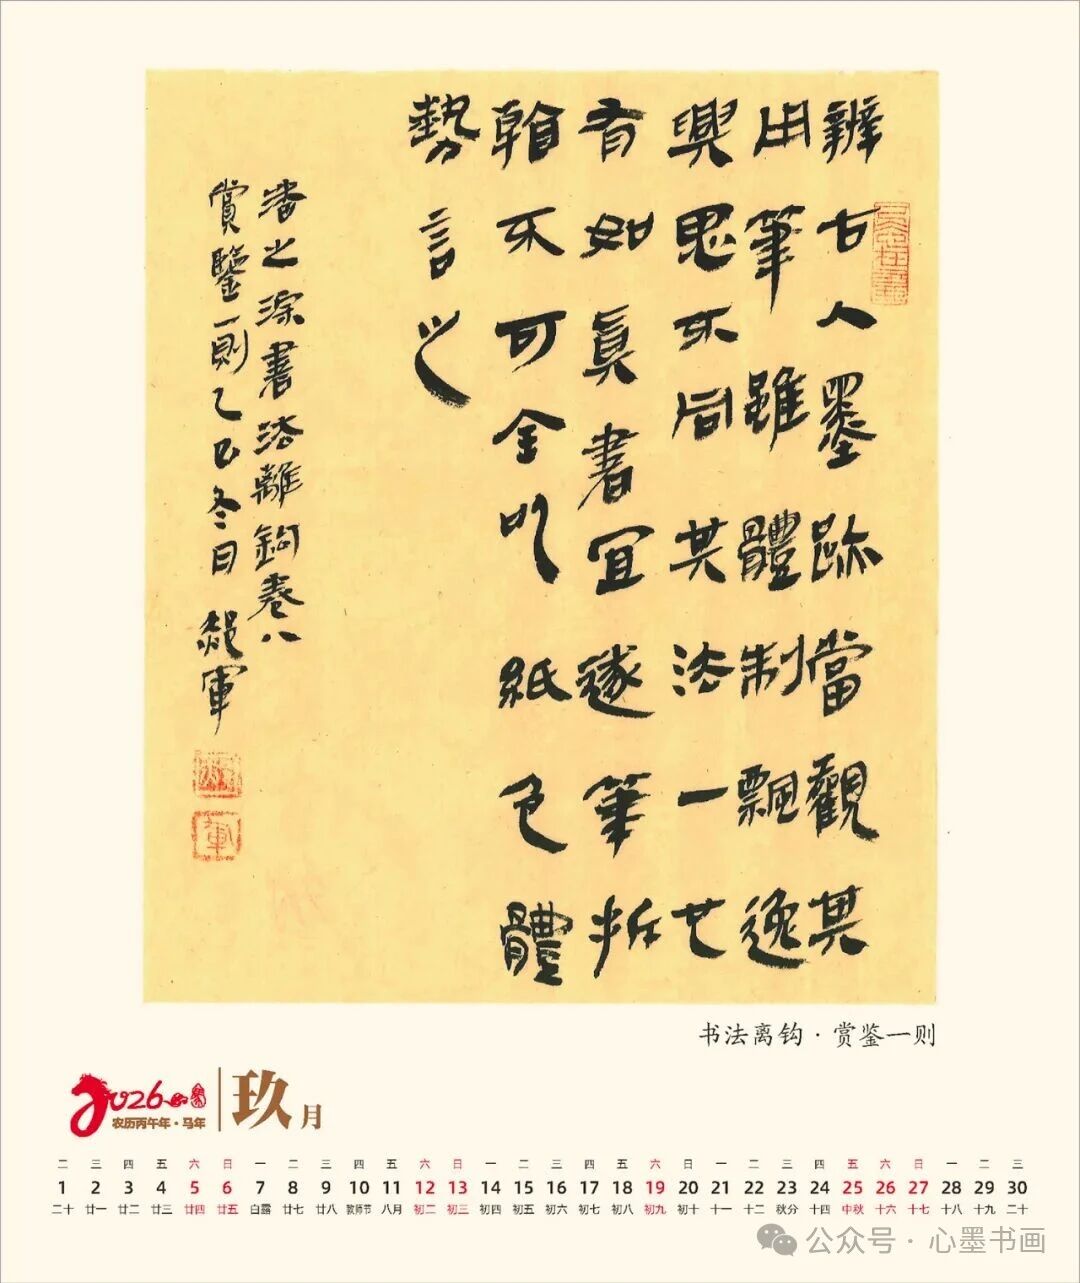 辨古人墨跡當觀其
用筆雖體制飄逸
興思不同其法一也
有如真書宜逐筆拆
翰不可全以紙色體
勢言之
潘之淙書法離鉤卷八
賞鑒一則乙巳冬月 軍
书法离钩·赏鉴一则
2026
农历丙午年·马年
玖月
二 三 四 五 六 日 一 二 三 四 五 六 日 一 二 三 四 五 六 日 一 二 三 四 五 六 日 一 二 三
1 2 3 4 5 6 7 8 9 10 11 12 13 14 15 16 17 18 19 20 21 22 23 24 25 26 27 28 29 30
二十 廿一 廿二 廿三 廿四 廿五 白露 廿七 廿八 教师节 八月 初二 初三 初四 初五 初六 初七 初八 初九 初十 十一 十二 秋分 十四 中秋 十六 十七 十八 十九 二十
公众号·心墨书画